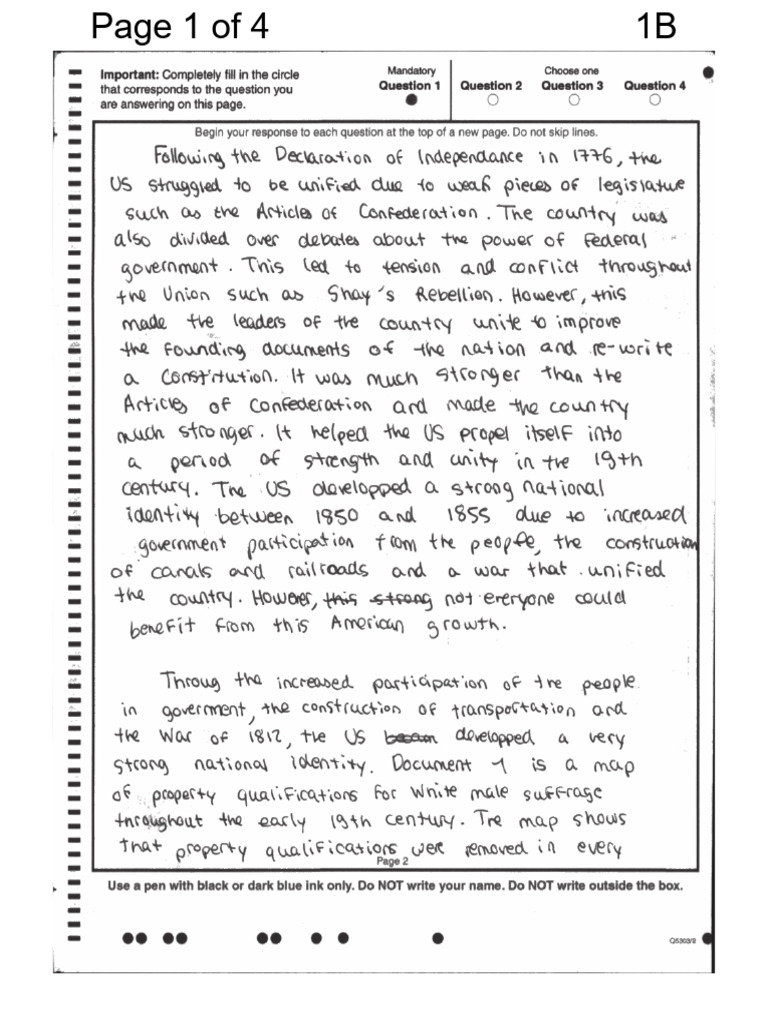 Page 1 of 4 1B
Important: Completely fill in the circle
that corresponds to the question you
are answering on this page.
Mandatory
Question 1
Question 2
Choose one
Question 3
Question 4
Begin your response to each question at the top of a new page. Do not skip lines.
Following the Declaration of Independance in 1776, the
US struggled to be unified due to weak pieces of legislatue
such as the Articles of Confederation. The country was
also divided over debates about the power of Federal
government. This led to tension and conflict throughout
the Union such as Shay's Rebellion. However, this
made the leaders of the country unite to improve
the founding documents of the nation and re-write
a Constitution. It was much stronger than the
Articles of Confederation and made the country
much stronger. It helped the US propel itself into
a period of strength and unity in the 19th
century. The US developped a strong national
identity between 1850 and 1855 due to increased
government participation from the people, the construction
of canals and railroads and a war that unified
the country. However, this strong not everyone could
benefit from this American growth.
Throug the increased participation of the people
in government, the construction of transportation and
the War of 1812, the US developped a very
strong national identity. Document 1 is a map
of property qualifications for white male suffrage
throughout the early 19th century. The map shows
that property qualifications were removed in every
Page 2
Use a pen with black or dark blue ink only. Do NOT write your name. Do NOT write outside the box.
Q5303/2